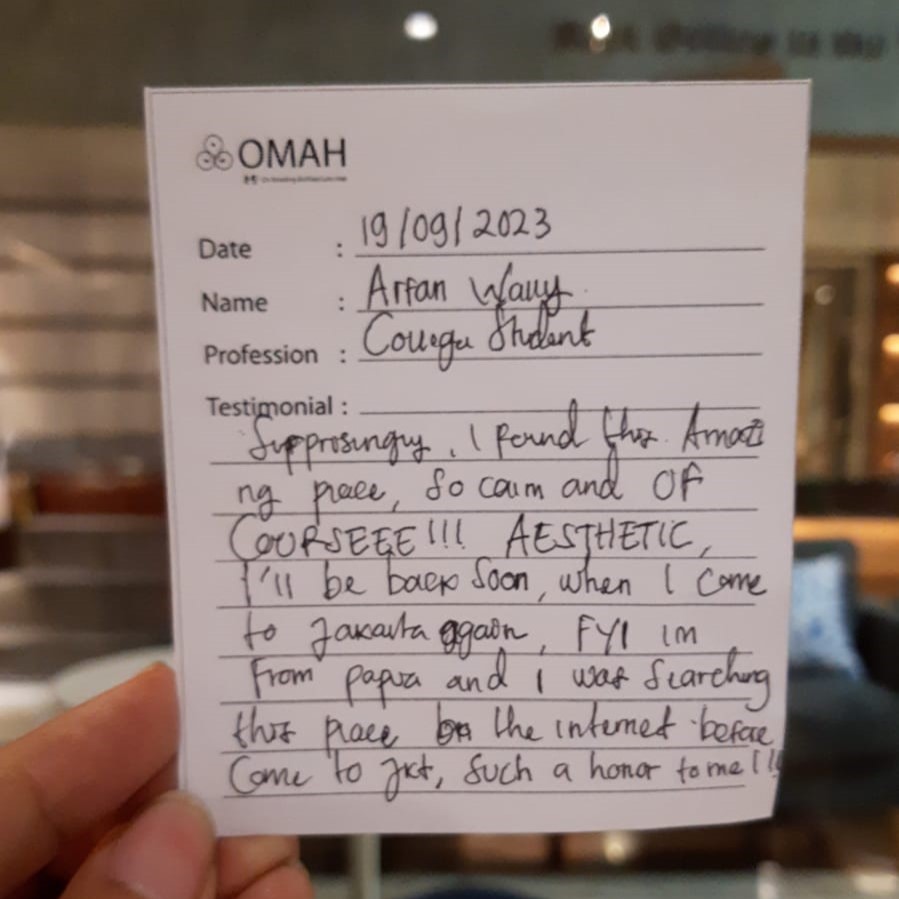 OMAH
Date : 19/09/2023
Name : Arfan Wauy
Profession : College Student
Testimonial :
Supprosinguy, I found this Amazi
ng place, So calm and OF
COURSEEE!!! AESTHETIC,
I'll be back Soon, when I Come
to Jakarta again, FYI im
From papua and I was Searching
this place on the internet before
Come to Jkt, Such a honor to me!!!